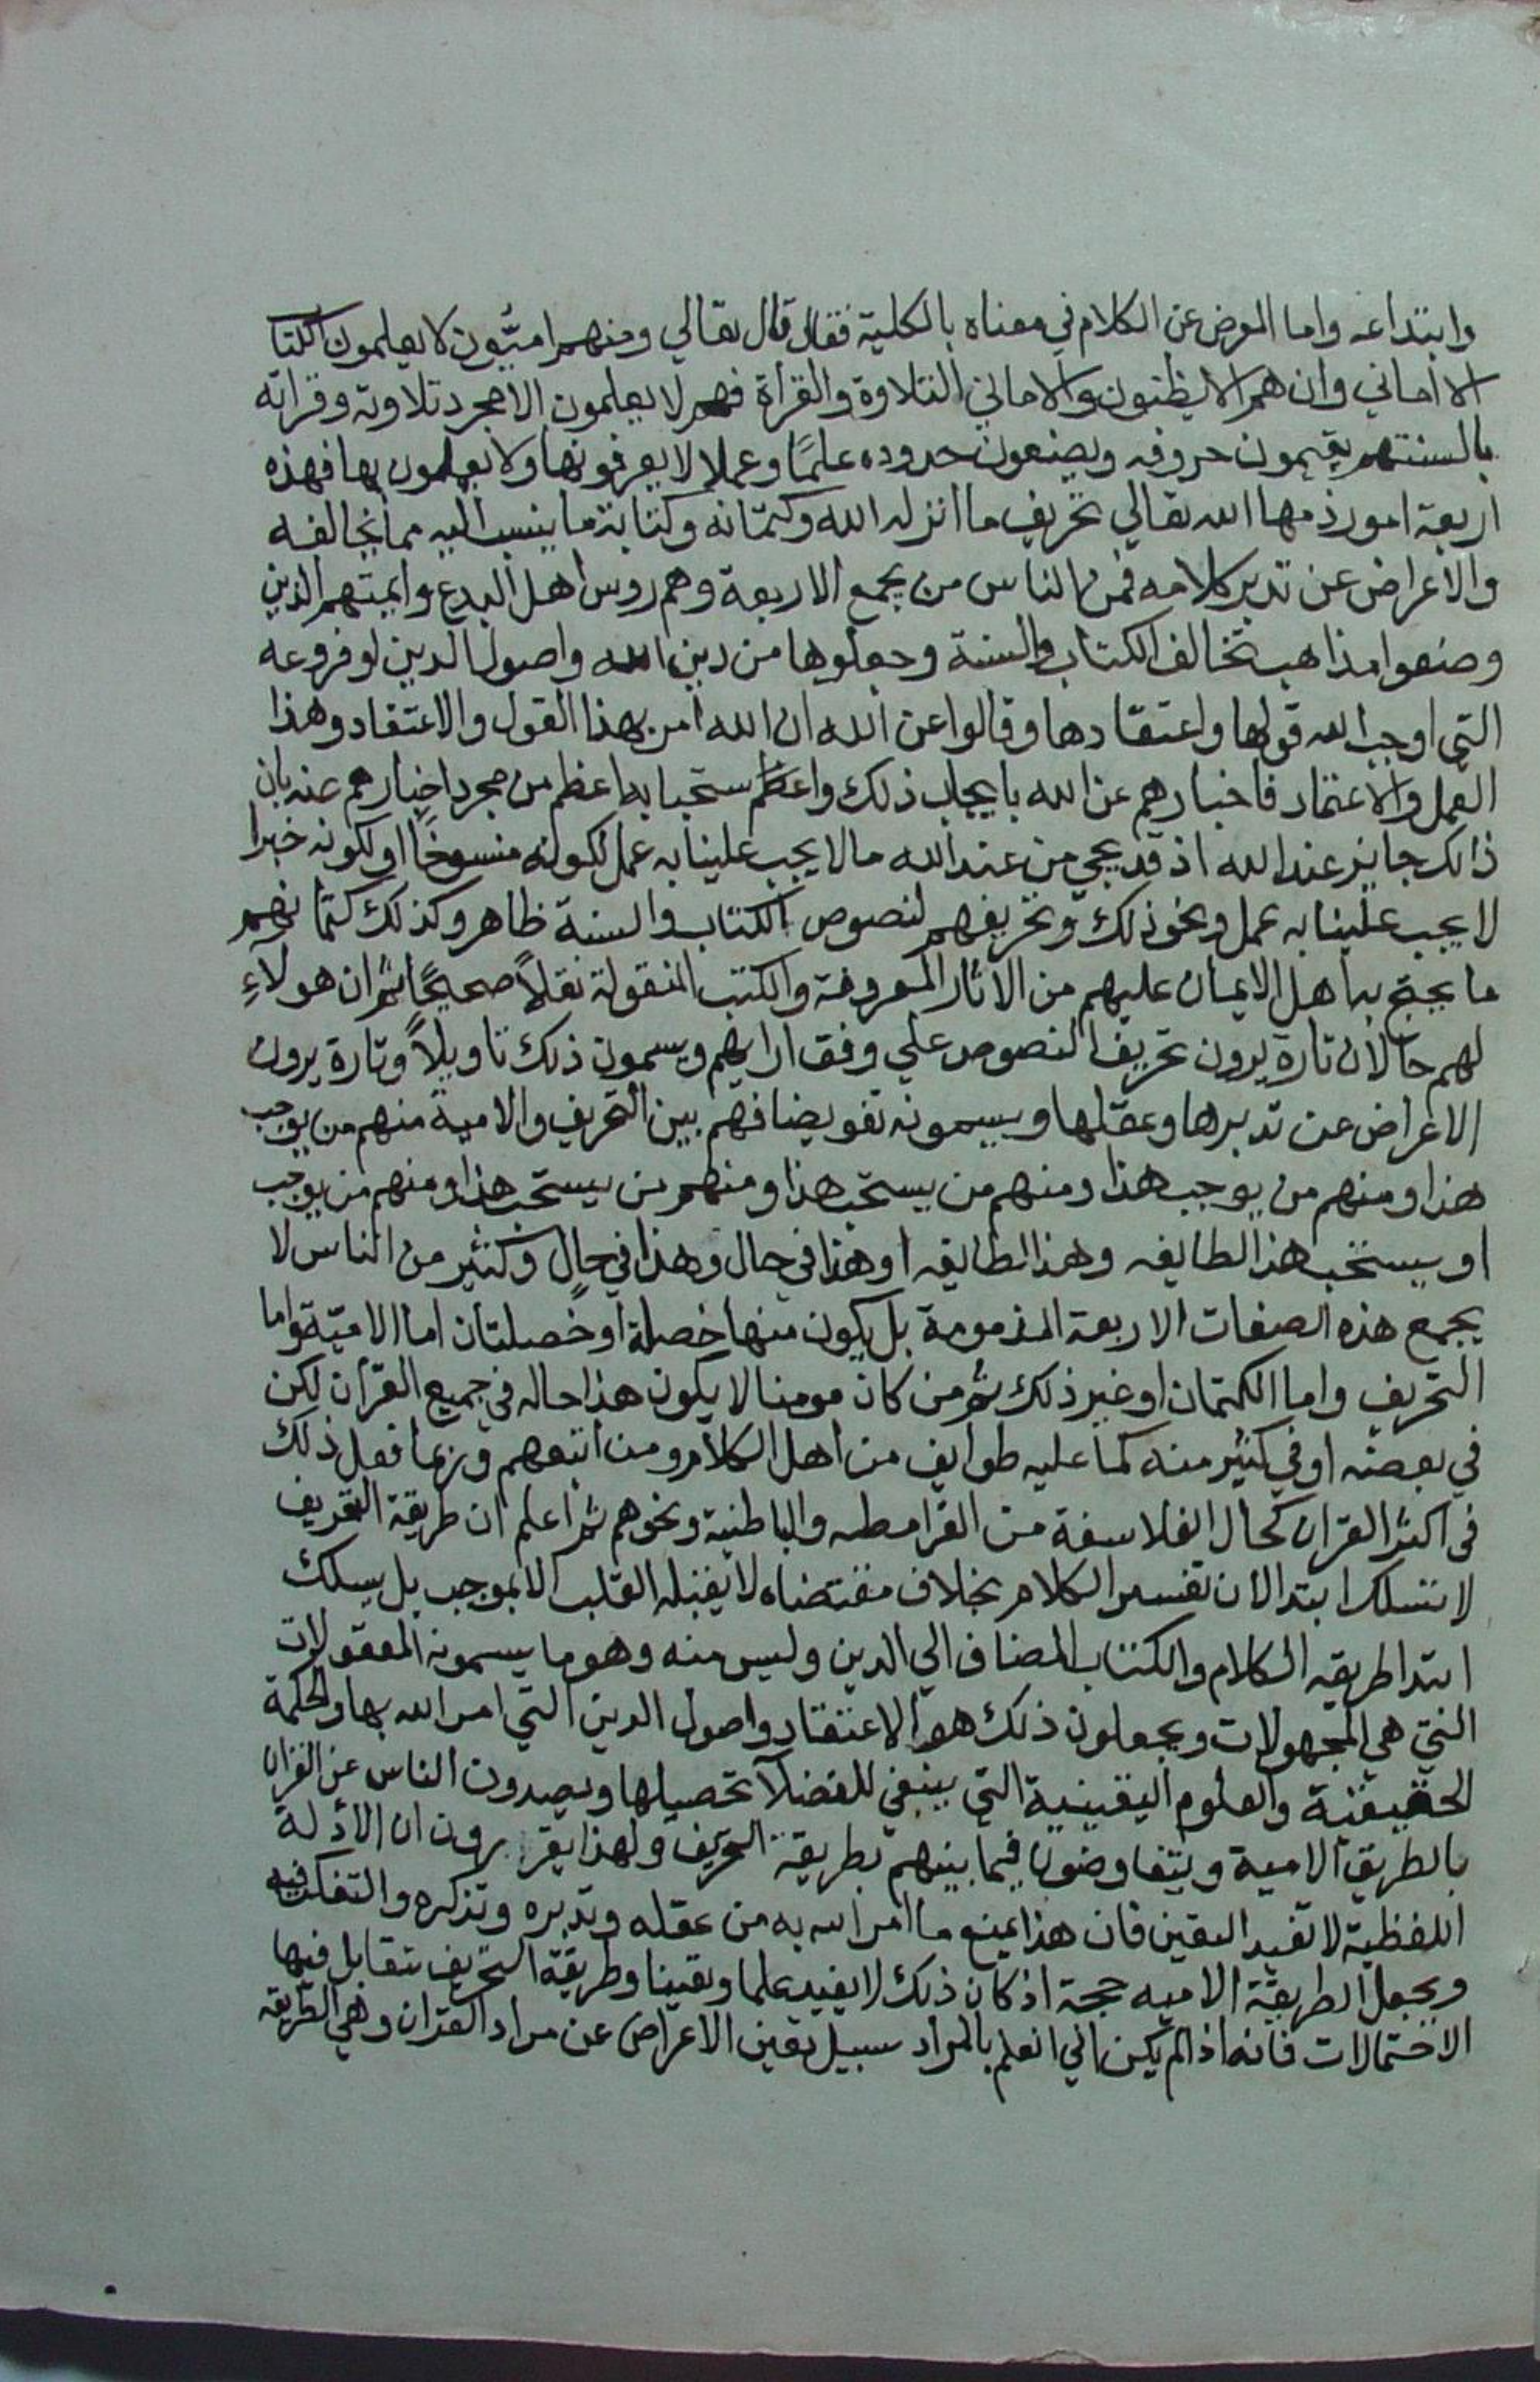 وابتداعه واما المرض عن الكلام في معناه بالكلية فقال قال تعالي ومنهم اميّون لا يعلمون الكتا
الا اماني وان هم الا يظنون والاماني التلاوة والقرأة فهم لا يعلمون الا مجرد تلاوته وقراته
بالسنتهم يقيمون حروفه ويضيعون حدوده علمًا وعملا لا يعرفونها ولا يعلمون بها فهذه
اربعة امور ذمها الله تعالي تحريف ما انزله الله وكتمانه وكتابة ما ينسب اليه مما يخالفه
والاعراض عن تدبر كلامه فمن الناس من يجمع الاربعة وهم روس اهل البدع وايمتهم الذين
وضعوا مذاهب تخالف الكتاب والسنة وجعلوها من دين الله واصول الدين او فروعه
التي اوجب الله قولها واعتقادها وقالوا عن الله ان الله امر بهذا القول والاعتقاد وهذا
العمل والاعتماد فاخبارهم عن الله بايجاب ذلك واعظم ستحبابه اعظم من مجرد اخبارهم عنه بان
ذالك جايز عند الله اذ قد يجي من عند الله ما لا يجب علينا به عمل لكونه منسوخًا او لكونه خبرا
لا يجب علينا به عمل ونحو ذلك وتحريفهم لنصوص الكتاب والسنة ظاهر وكذلك كتمانهم
ما يحتج به اهل الايمان عليهم من الاثار المعروفة والكتب المنقولة نقلاً صحيحًا ثم ان هولآءِ
لهم حالان تارة يرون تحريف النصوص علي وفق ارايهم ويسمون ذلك تاويلاً وتارة يرون
الاعراض عن تدبرها وعقلها ويسمونه تفويضا فهم بين التحريف والامية منهم من يوجب
هذا ومنهم من يوجب هذا ومنهم من يستحب هذا ومنهم من يستحب هذا ومنهم من يوجب
او يستحب هذا لطايفه وهذا لطايفه او هذا في حال وهذا في حالٍ وكثير من الناس لا
يجمع هذه الصفات الاربعة المذمومة بل يكون منها خصلة او خصلتان اما الاميّة واما
التحريف واما الكتمان او غير ذلك ثم من كان مومنا لا يكون هذا حاله في جميع القرآن لكن
في بعضه او في كثير منه كما عليه طوايف من اهل الكلام ومن اتبعهم وربما فعل ذلك
في اكثر القران كحال الفلاسفة من القرامطه والباطنية ونحوهم ثم اعلم ان طريقة التحريف
لا تسلك ابتدا لان تفسير الكلام بخلاف مقتضاه لا يقبله القلب الا بموجب بل يسلك
ابتدا طريقه الكلام والكتاب المضاف الي الدين وليس منه وهو ما يسمونه المعقولات
التي هي المجهولات ويجعلون ذلك هو الاعتقاد واصول الدين التي امر الله بها والحكمة
الحقيقية والعلوم اليقينية التي ينبغي للفضلآ تحصيلها ويصدون الناس عن القران
بالطريق الامية ويتفاوضون فيما بينهم بطريقة التحريف ولهذا يقررون ان الادلة
اللفظية لا تفيد اليقين فان هذا يمنع ما امر الله به من عقله وتدبره وتذكره والتفكر فيه
ويجعل الطريقة الاميه حجة اذ كان ذلك لا يفيد علما ويقينا وطريقة التحريف تتقابل فيها
الاحتمالات فانه اذا لم يكن الي العلم بالمراد سبيل تعين الاعراض عن مراد القران وهي الطريقه